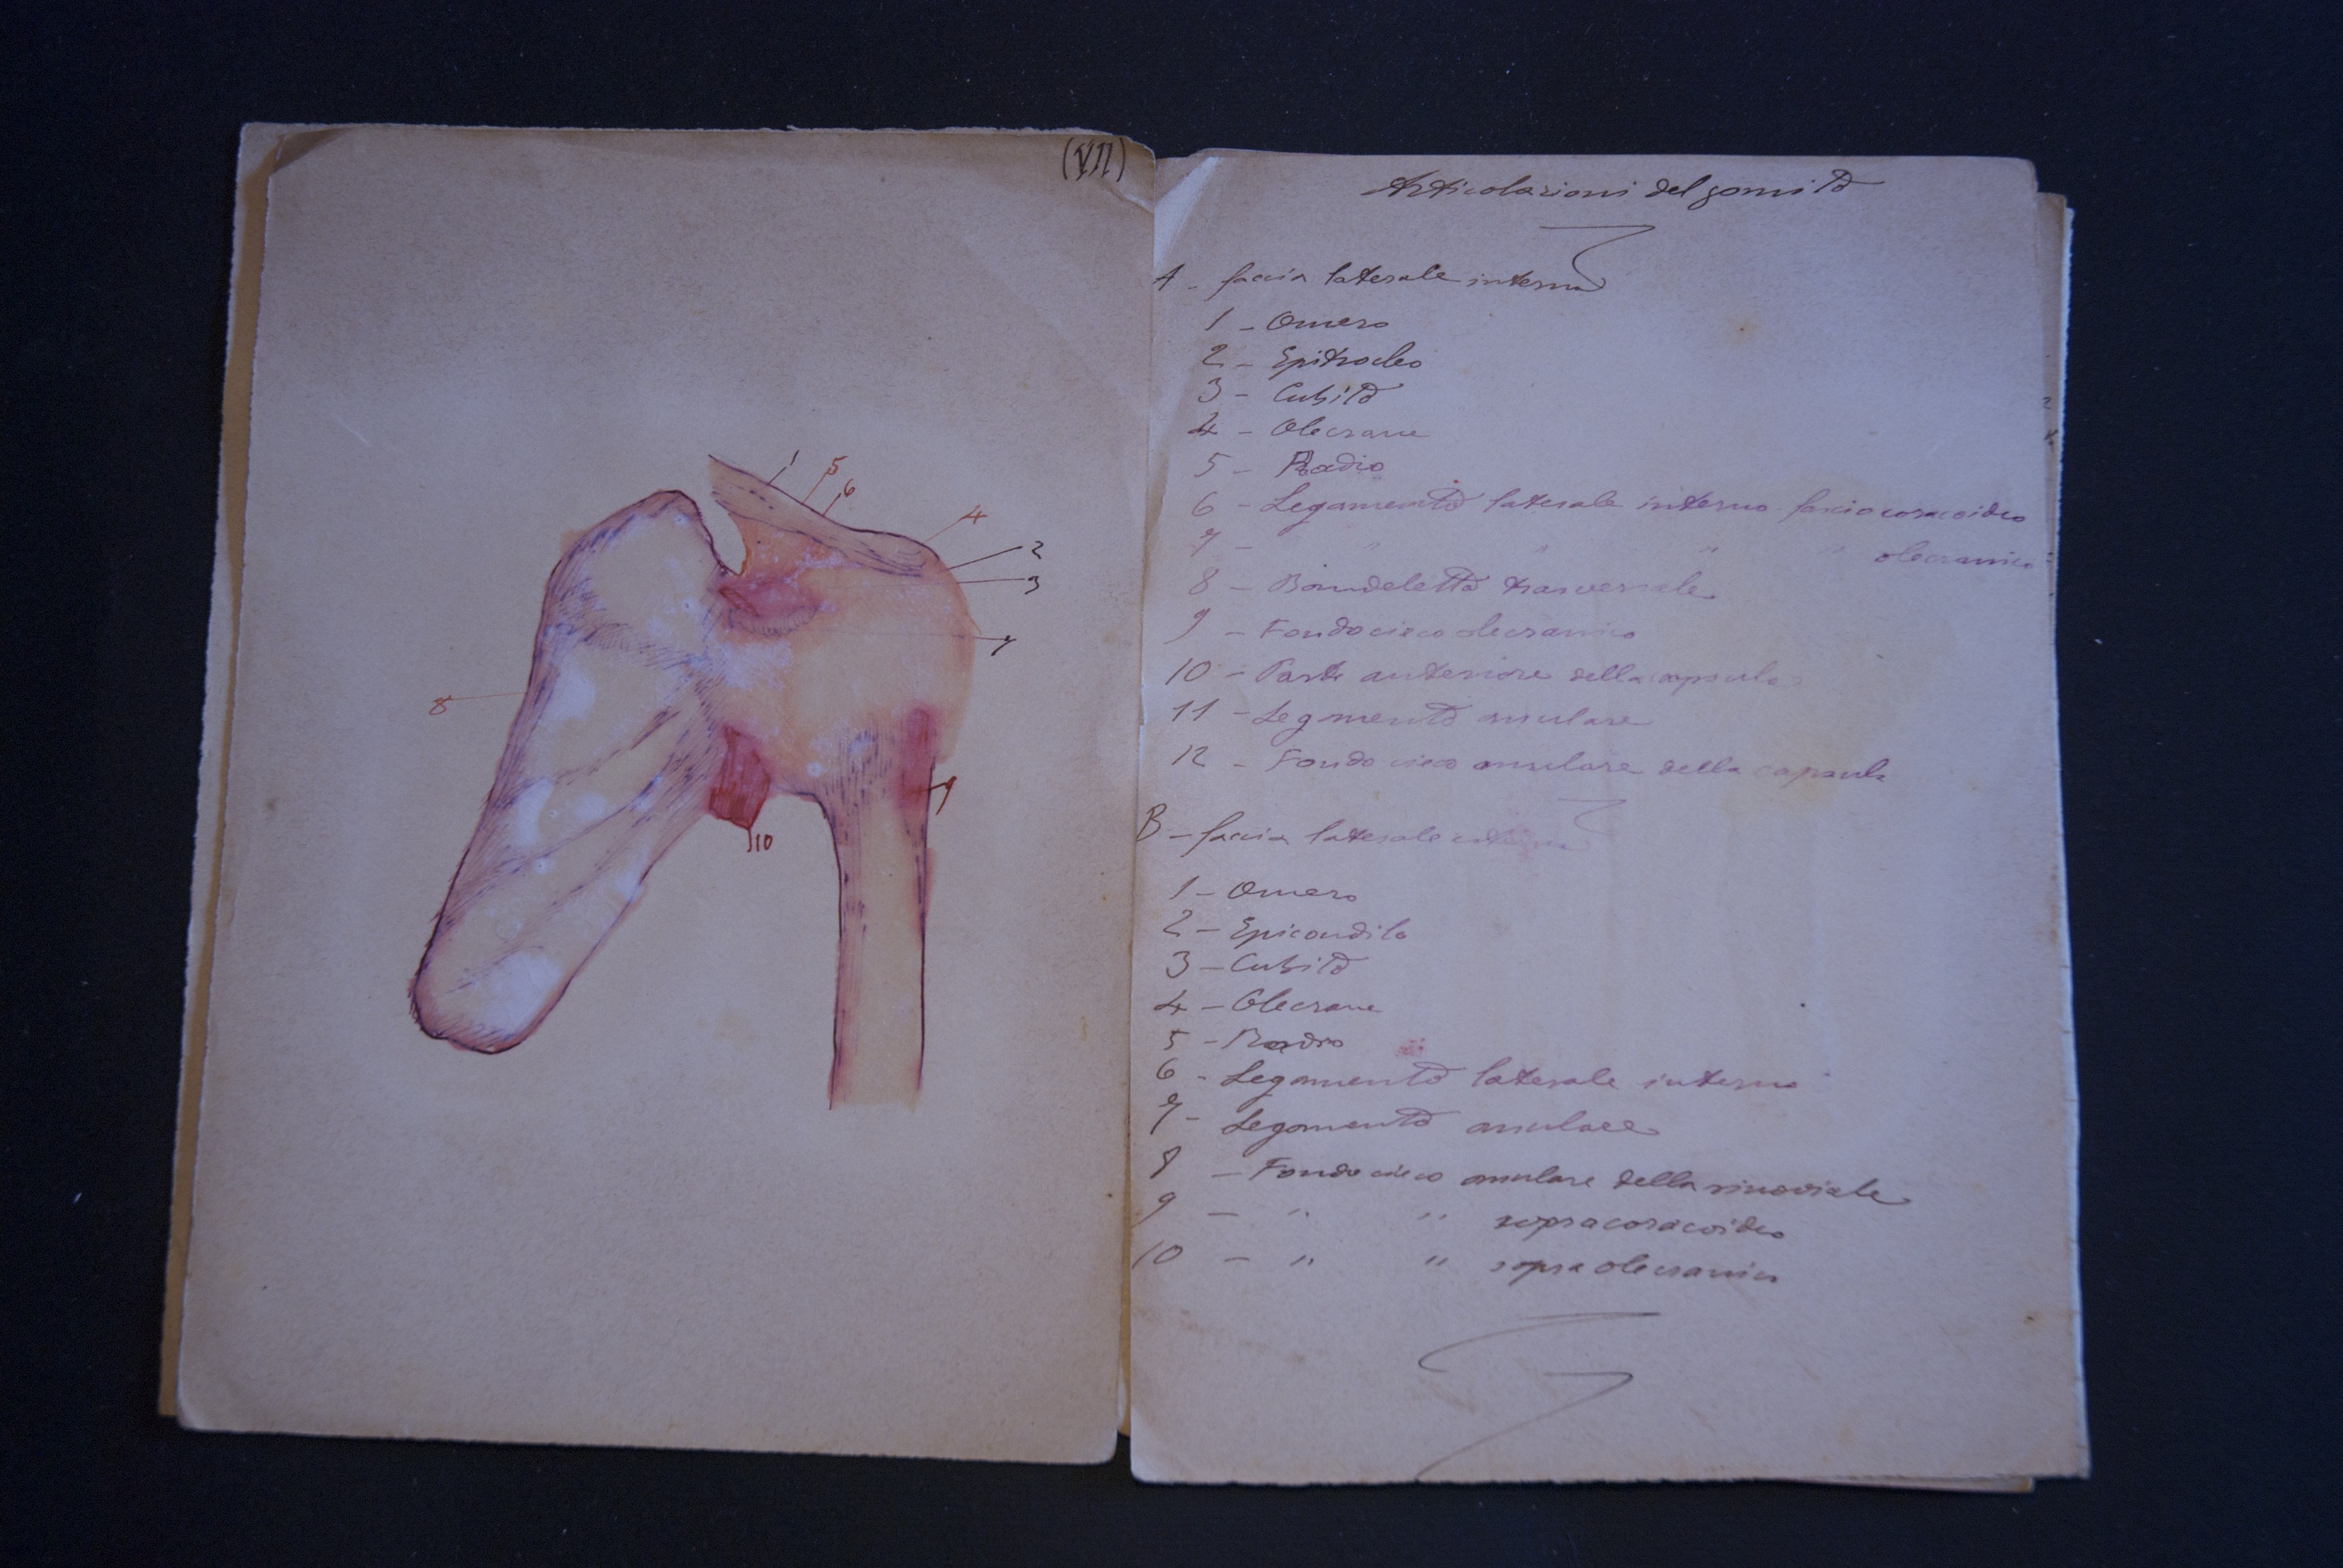 (VII)
1
5
6
4
2
3
7
8
9
10
Articolazioni del gomito
A - faccia laterale interna
1 - Omero
2 - Epitrocleo
3 - Cubito
4 - Olecrane
5 - Radio
6 - Legamento laterale interno fascio coracoideo
7 - " " " " olecranico
8 - Bandeletta trasversale
9 - Fondo cieco olecranico
10 - Parte anteriore della capsula
11 - Legmento anulare
12 - Fondo cieco anulare della capsula
B - faccia laterale esterna
1 - Omero
2 - Epicondilo
3 - Cubito
4 - Olecrane
5 - Radio
6 - Legamento laterale interno
7 - Legamento anulare
8 - Fondo cieco anulare della sinoviale
9 - " " sopracoracoideo
10 - " " sopra olecranico